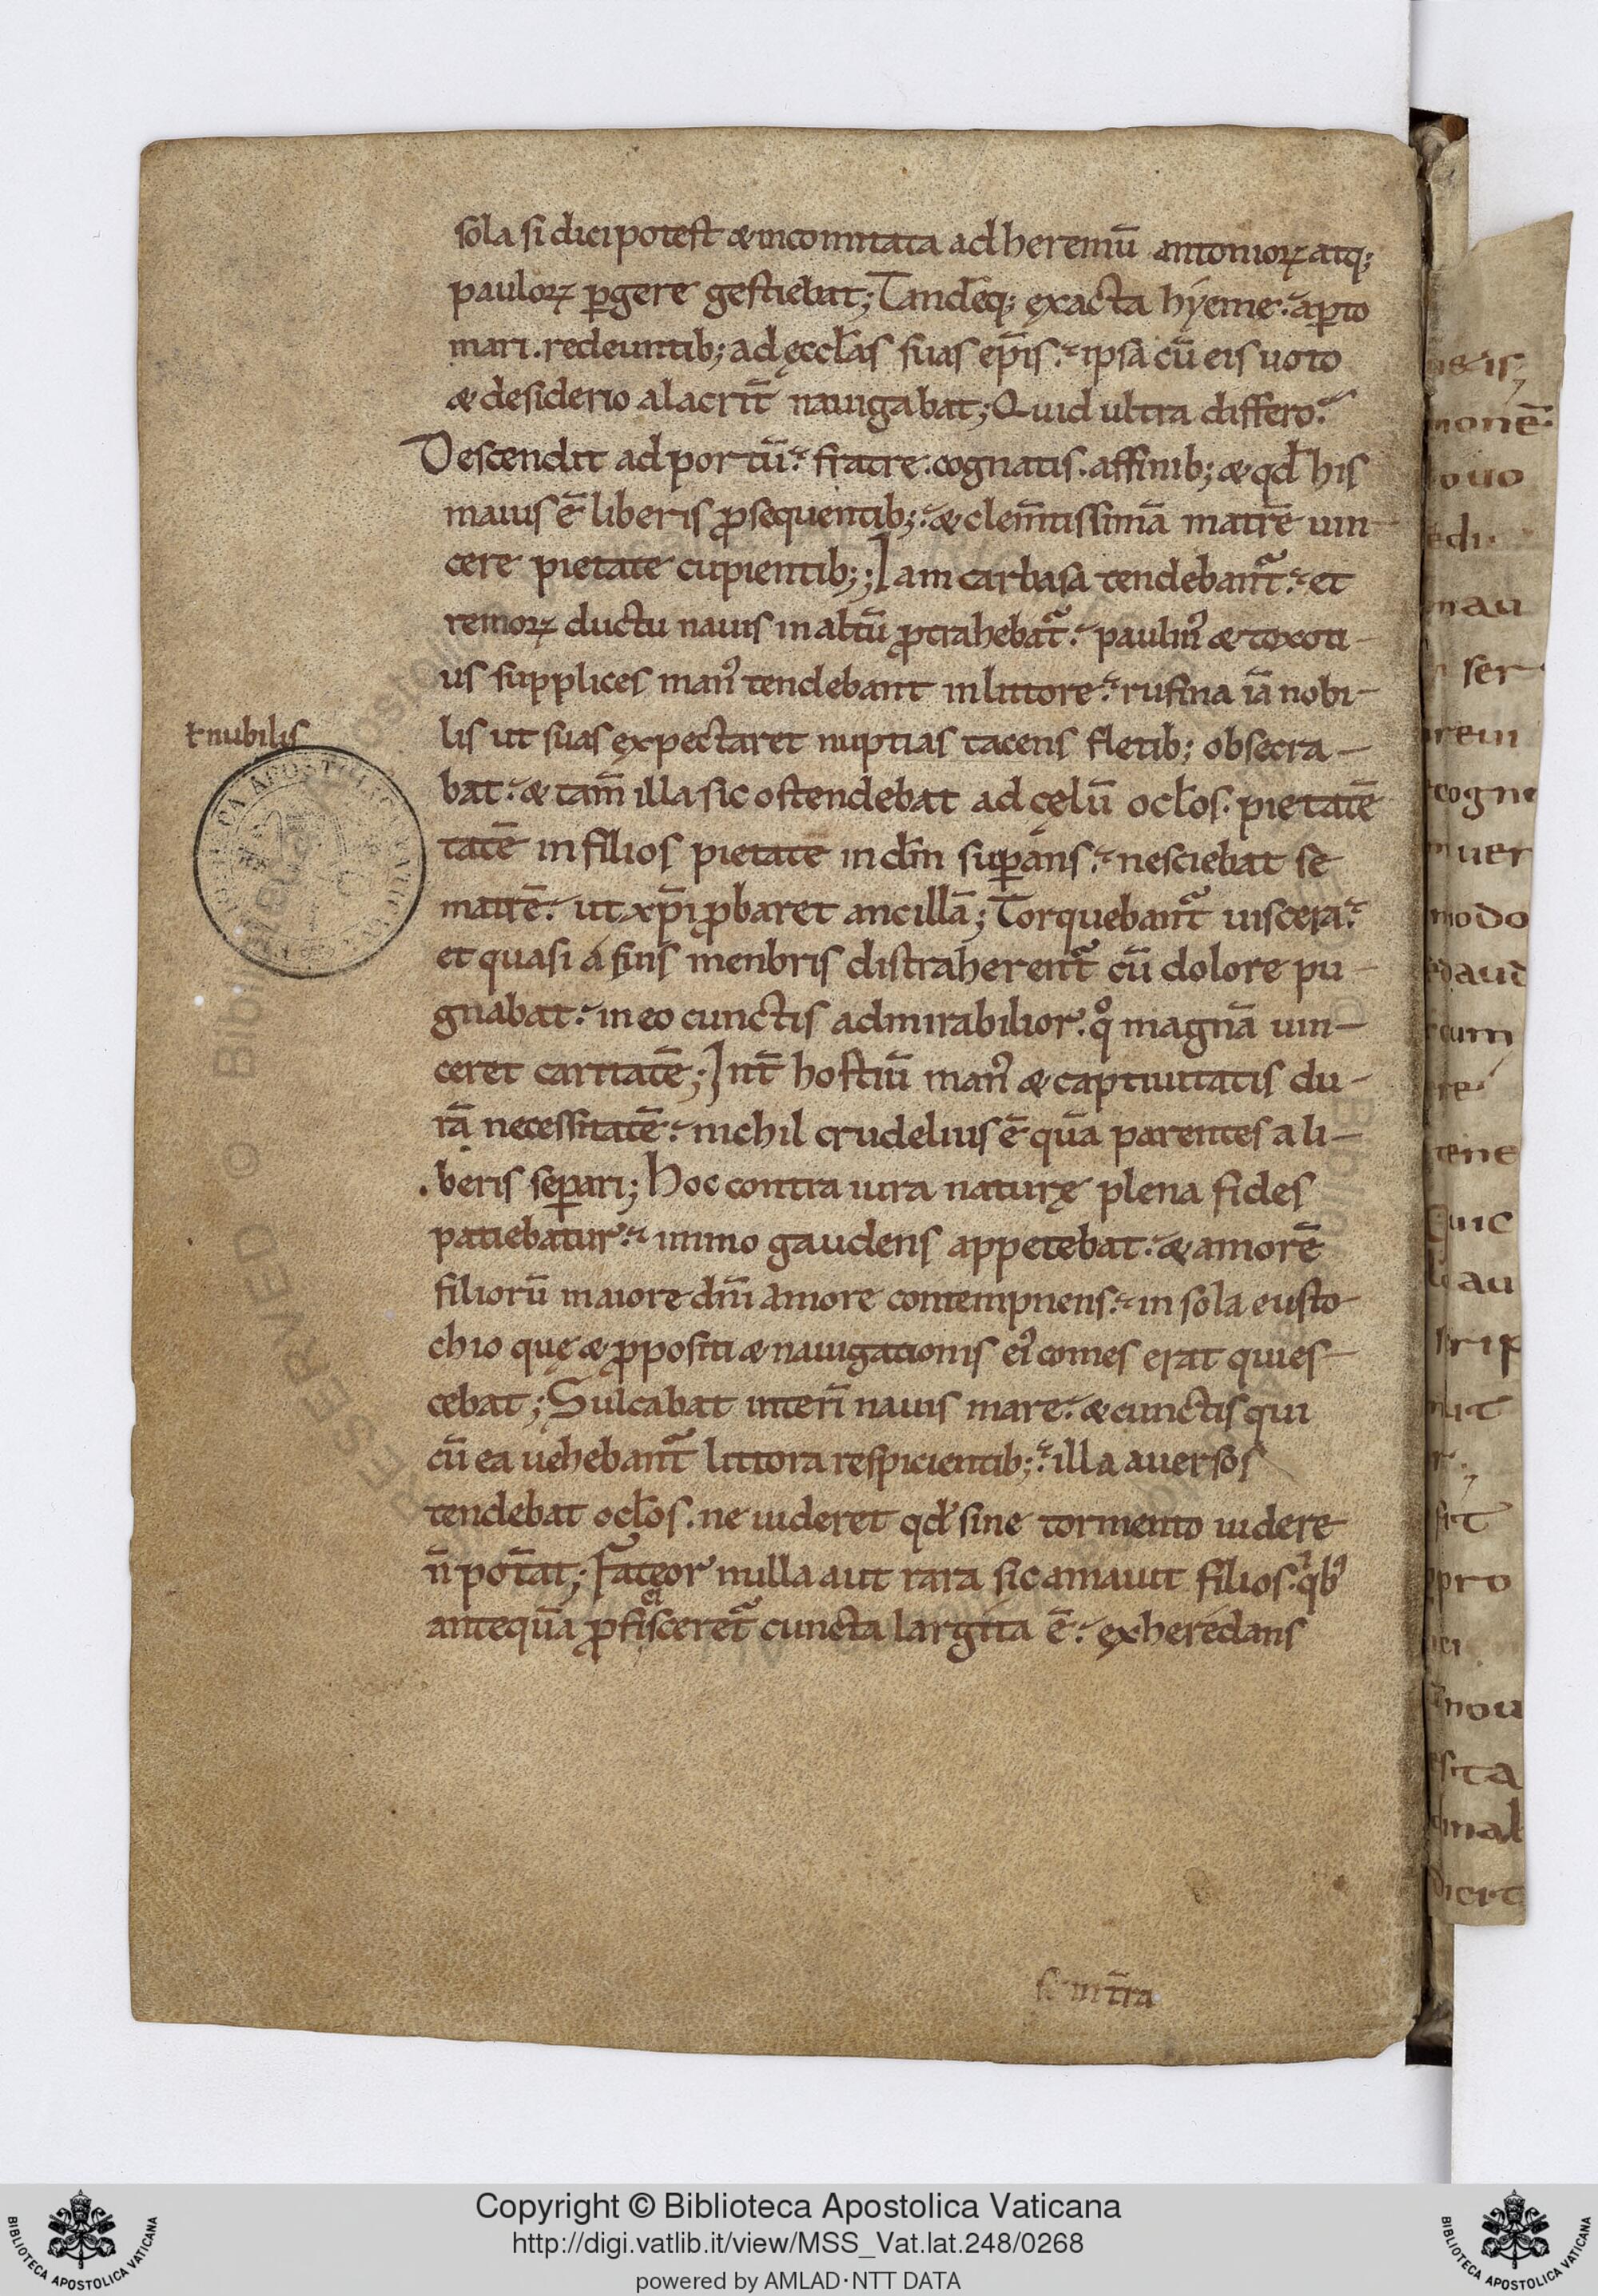 sola si dici potest & incomitata ad heremū antonioꝝ atq;
pauloꝝ ꝑgere gestiebat; Tandēq; exacta hyeme. aꝑto
mari. redeuntib; ad ęccl̄as suas ep̄is. ipsa cū eis uoto
& desiderio alacrit̄ nauigabat; Quid ultra differo.
Descendit ad portū. fratre. cognatis. affinib; & qd̄ his
maius ē liberis ꝓsequentib; & clem̄tissimā matrē uin
cere pietate cupientib;; Iam carbasa tendebant᷑. et
remoꝝ ductu nauis in altū ꝓtrahebat᷑. paulinꝰ & toxoti-
us supplices manꝰ tendebant in littore. rufina iā nobi-
ł nubilis
lis ut suas expectaret nuptias tacens fletib; obsecra-
bat. & tam̄ illa sic ostendebat ad cęlū ocl̄os. pietatē
tatē in filios pietate in dm̄ suꝑans. nesciebat se
matrē. ut xp̄i ꝓbaret ancillā; Torquebant᷑ uiscera.
et quasi á suis menbris distraherent᷑ cū dolore pu-
gnabat. in eo cunctis admirabilior. qͦ magnā uin-
ceret caritatē; Int̄ hostiū manꝰ & captiuitatis du-
rā necessitatē. nichil crudelius ē quā parentes a li-
beris seꝑari; Hoc contra iura naturę plena fides
patiebatur. immo gaudens appetebat. & amorē
filiorū maiore dn̄i amore contempnens. in sola eusto
chio quę & ꝓpositi & nauigationis eiꝰ comes erat quies-
cebat; Sulcabat interī nauis mare. & cunctis qui
cū ea uehebant᷑ littora respicientib; illa auersos
tendebat ocl̄os. ne uideret qd̄ sine tormento uidere
n̄ pot̄at; Fateor nulla aut rara sic amauit filios. qͥbꝰ
antequā ꝓficisceret᷑ cuncta largita ē. exheredans
Copyright © Biblioteca Apostolica Vaticana
http://digi.vatlib.it/view/MSS_Vat.lat.248/0268
powered by AMLAD·NTT DATA
BIBLIOTECA APOSTOLICA VATICANA
BIBLIOTECA APOSTOLICA VATICANA